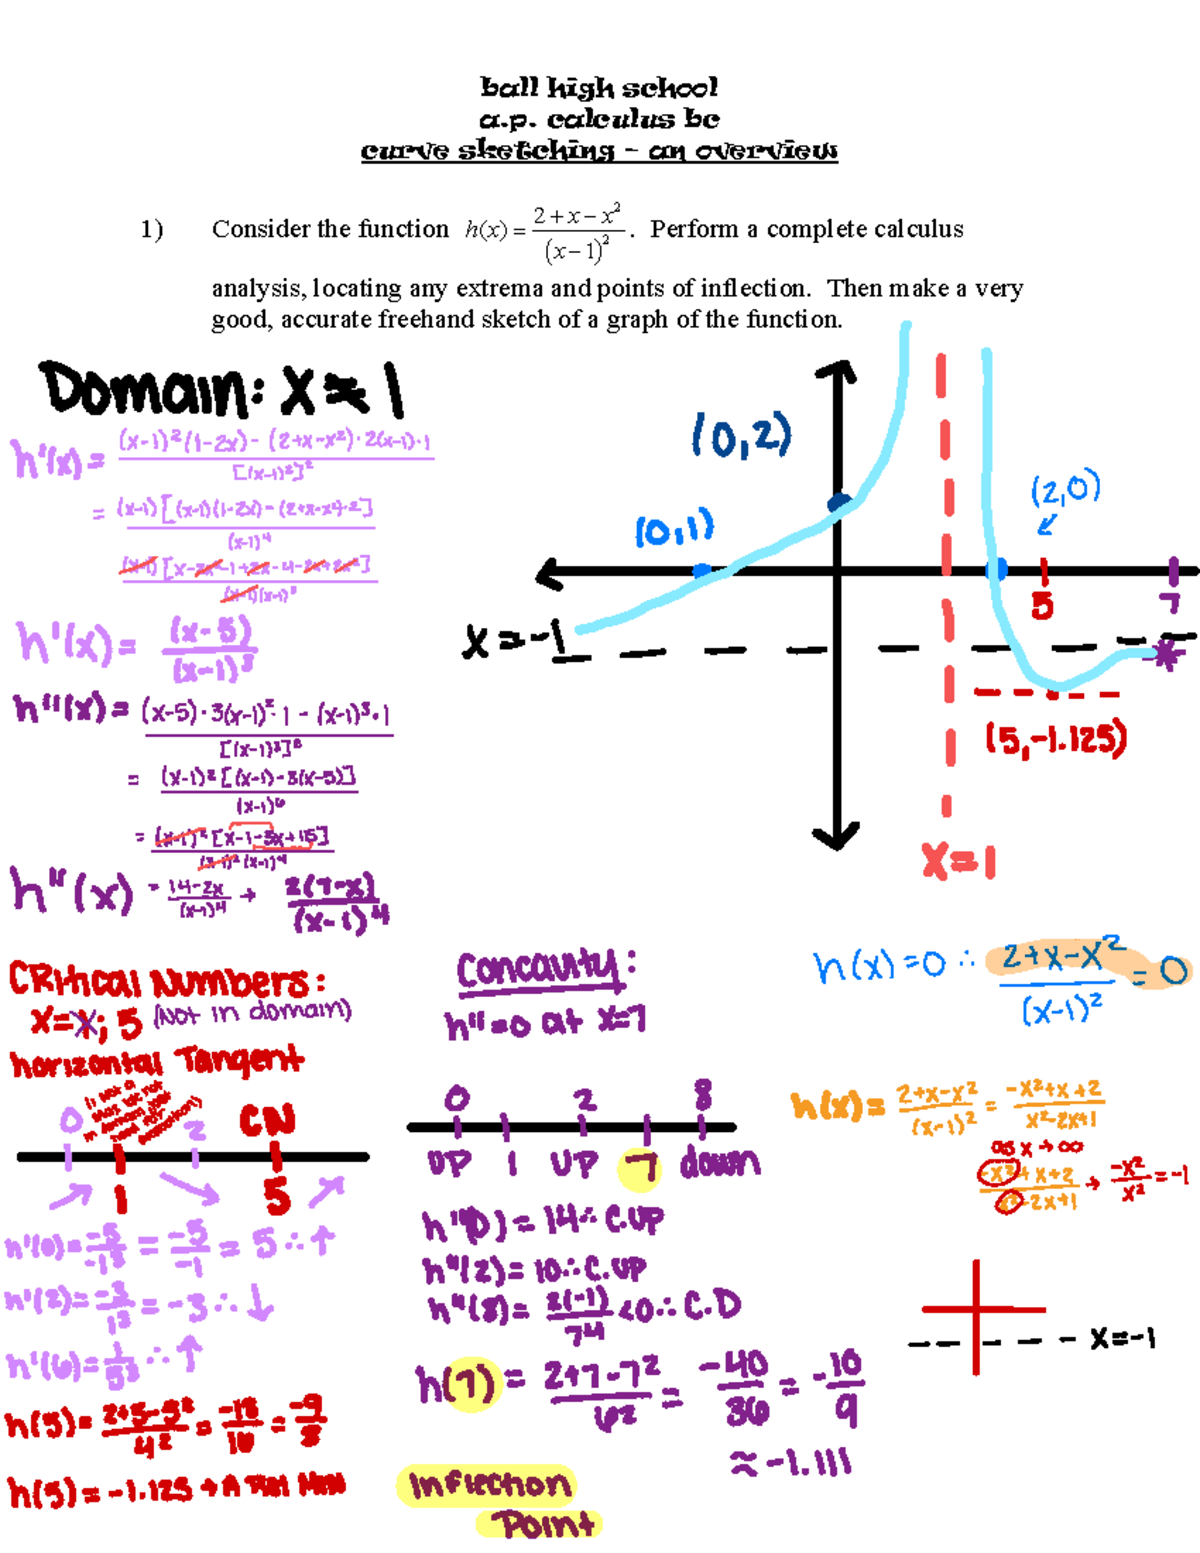 ball high school
a.p. calculus bc
curve sketching – an overview
1) Consider the function h(x) = (2 + x − x²)/(x − 1)². Perform a complete calculus
analysis, locating any extrema and points of inflection. Then make a very
good, accurate freehand sketch of a graph of the function.
Domain: x ≠ 1
h'(x) = ((x-1)²(1-2x) - (2+x-x²)·2(x-1)·1)/[(x-1)²]²
= (x-1)[(x-1)(1-2x) - (2+x-x²)·2]/(x-1)⁴
(x-1)[x-2x²-1+2x-4-2x+2x²]/(x-1)(x-1)³
h'(x) = (x-5)/(x-1)³
h''(x) = ((x-5)·3(x-1)²·1 - (x-1)³·1)/[(x-1)³]²
= (x-1)²[(x-1)-3(x-5)]/(x-1)⁶
= (x-1)²[x-1-3x+15]/(x-1)²(x-1)⁴
h''(x) = (14-2x)/(x-1)⁴ → 2(7-x)/(x-1)⁴
(0,2)
(0,1)
(2,0)
5
7
x=-1
(5,-1.125)
x=1
Critical Numbers:
x=x; 5 (Not in domain)
horizontal Tangent
0 2 CN
1 5
h'(0)= -5/-1³ = -5/-1 = 5 ∴ ↑
h'(2)= -3/1³ = -3 ∴ ↓
h'(6)= 1/5³ ∴ ↑
h(5)= (2+5-5²)/4² = -18/16 = -9/8
h(5)= -1.125 → A
Concavity:
h''=0 at x=7
0 2 8
UP 1 UP 7 down
h''(0) = 14 ∴ C.UP
h''(2) = 10 ∴ C.UP
h''(8) = 2(-1)/7⁴ <0 ∴ C.D
h(7) = (2+7-7²)/6² = -40/36 = -10/9
≈ -1.111
Inflection
Point
h(x)=0 ∴ (2+x-x²)/(x-1)² = 0
h(x)= (2+x-x²)/(x-1)² = (-x²+x+2)/(x²-2x+1)
as x→∞
(-x²+x+2)/(x²-2x+1) → -x²/x² = -1
x=-1